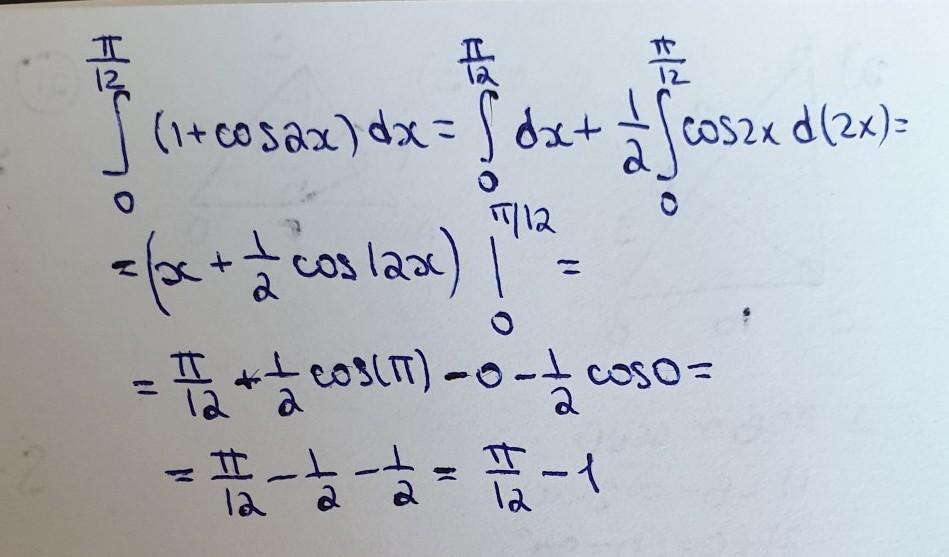 ∫_0^{π/12} (1+cos2x) dx = ∫_0^{π/12} dx + 1/2 ∫_0^{π/12} cos2x d(2x) =
= (x + 1/2 cos12x) |_0^{π/12} =
= π/12 + 1/2 cos(π) - 0 - 1/2 cos0 =
= π/12 - 1/2 - 1/2 = π/12 - 1